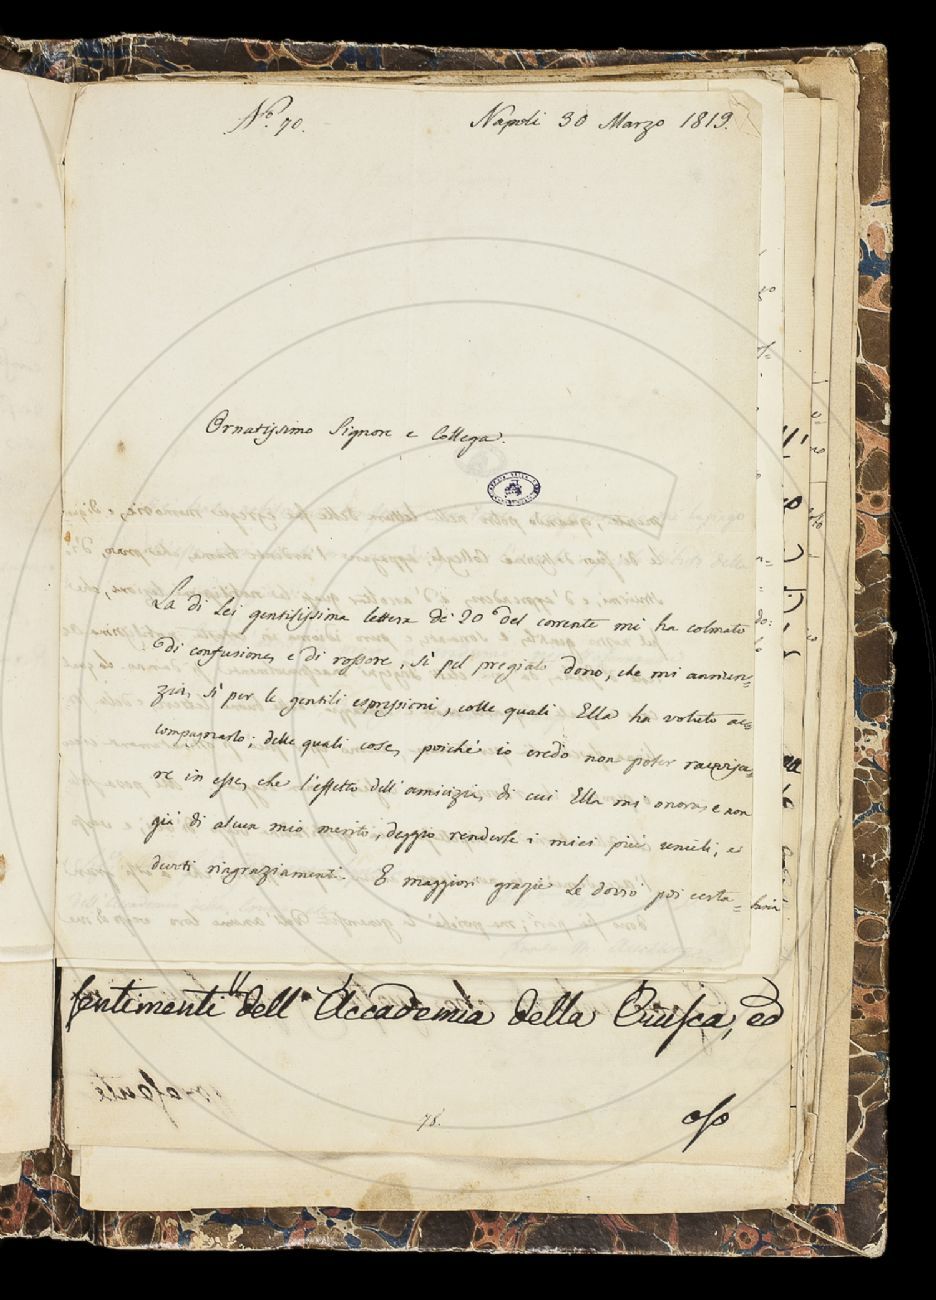 Nº. 70.
Napoli 30 Marzo 1819.
Ornatissimo Signore e Collega.
La di Lei gentilissima lettera de' 20 del corrente mi ha colmato
di confusione, e di rossore, sì pel pregiato dono, che mi annun=
zia, sì per le gentili espressioni, colle quali Ella ha voluto ac=
compagnarlo; delle quali cose, poiché io credo non poter ravvisa=
re in esse, che l'effetto dell'amicizia, di cui Ella mi onora, e non
già di alcun mio merito, deggio renderle i miei più umili, e
devoti ringraziamenti. E maggiori grazie Le dovrò poi certa=
sentimenti dell'Accademia della Crusca, ed
78.